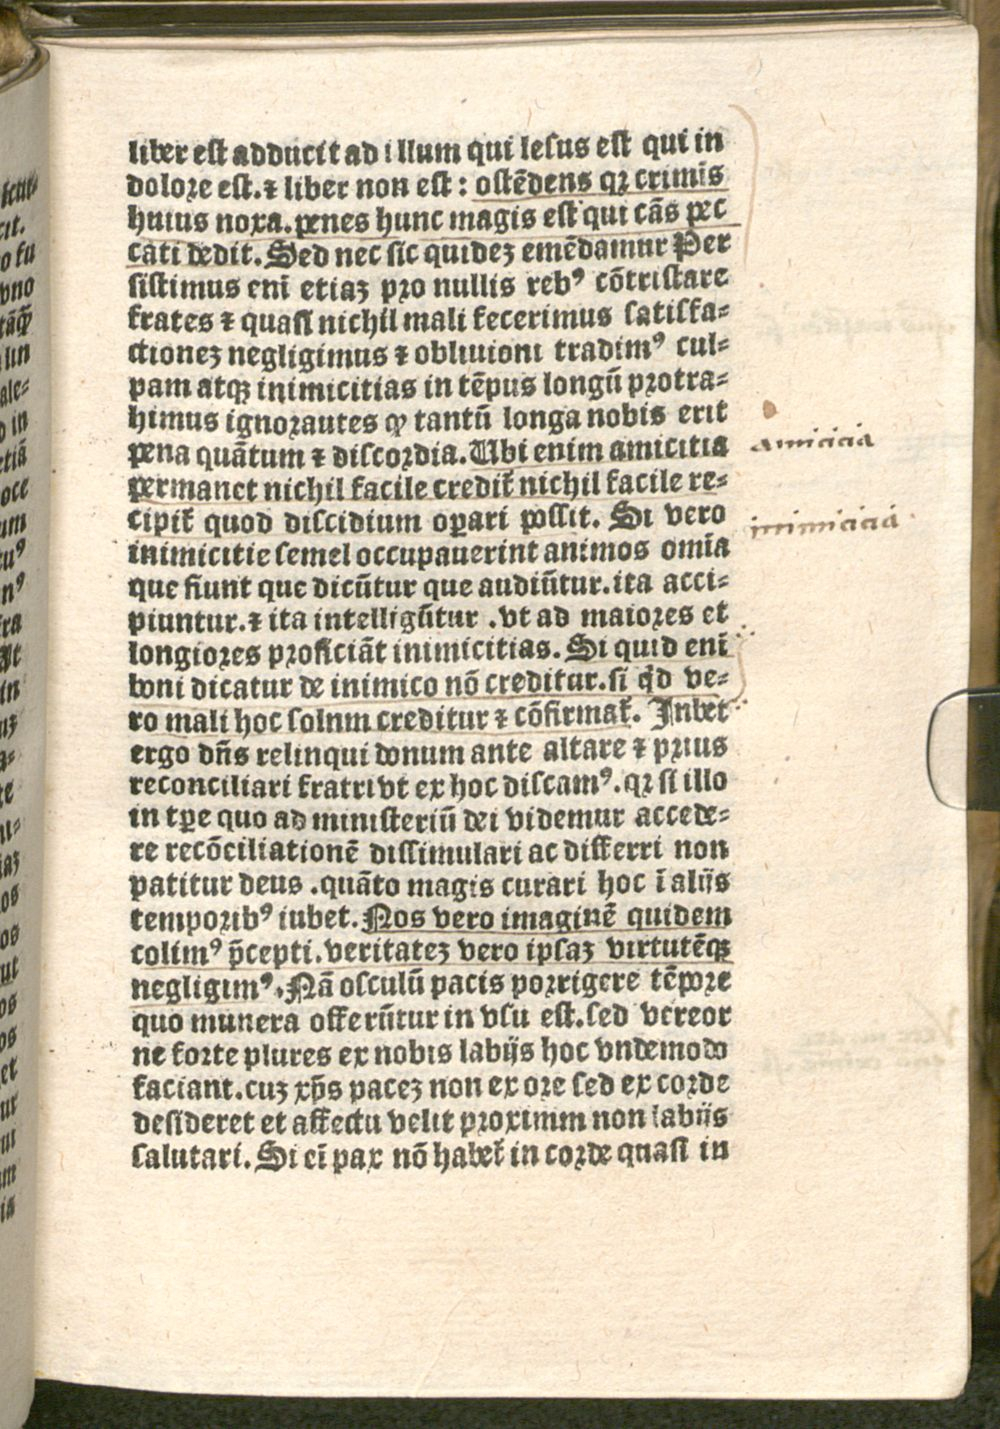 liber est adducit ad illum qui lesus est qui in
dolore est. ⁊ liber non est : ostēdens qꝛ crimīs
huius noxa. penes hunc magis est qui cās pec
cati dedit. Sed nec sic quideȝ emēdamur Per
sistimus enī etiaȝ pro nullis rebꝰ cōtristare
frates ⁊ quasi nichil mali fecerimus satisfa⸗
ctioneȝ negligimus ⁊ obliuioni tradimꝰ cul⸗
pam atqȝ inimicitias in tēpus longū protra⸗
himus ignorautes ꝙ tantū longa nobis erit
pena quātum ⁊ discordia. Ubi enim amicitia
amicicia
permanet nichil facile credit᷑ nichil facile re⸗
cipit᷑ quod discidium operari possit. Si vero
inimicicia
inimicitie semel occupauerint animos omīa
que fiunt que dicūtur que audiūtur. ita acci⸗
piuntur. ⁊ ita intelligūtur . vt ad maiores et
longiores proficiāt inimicitias. Si quid enī
boni dicatur de inimico nō creditur. si qͥd ve⸗
ro mali hoc solnm creditur ⁊ cōfirmat᷑. Inbet
ergo dn̄s relinqui donum ante altare ⁊ prius
reconciliari fratri vt ex hoc discamꝰ. qꝛ si illo
in tꝑe quo ad ministeriū dei videmur accede⸗
re recōciliationē dissimulari ac differri non
patitur deus . quāto magis curari hoc ī alijs
temporibꝰ iubet. Nos vero imaginē quidem
colimꝰ p̄cepti. veritateȝ vero ipsaȝ virtutēqȝ
negligimꝰ. Nā osculū pacis porrigere tēpore
quo munera offerūtur in vsu est. sed vereor
ne forte plures ex nobis labijs hoc vndemodo
faciant. cuȝ xp̄s paceȝ non ex ore sed ex corde
desideret et affectu velit proximm non labijs
salutari. Si eī pax nō habet᷑ in corde quasi in